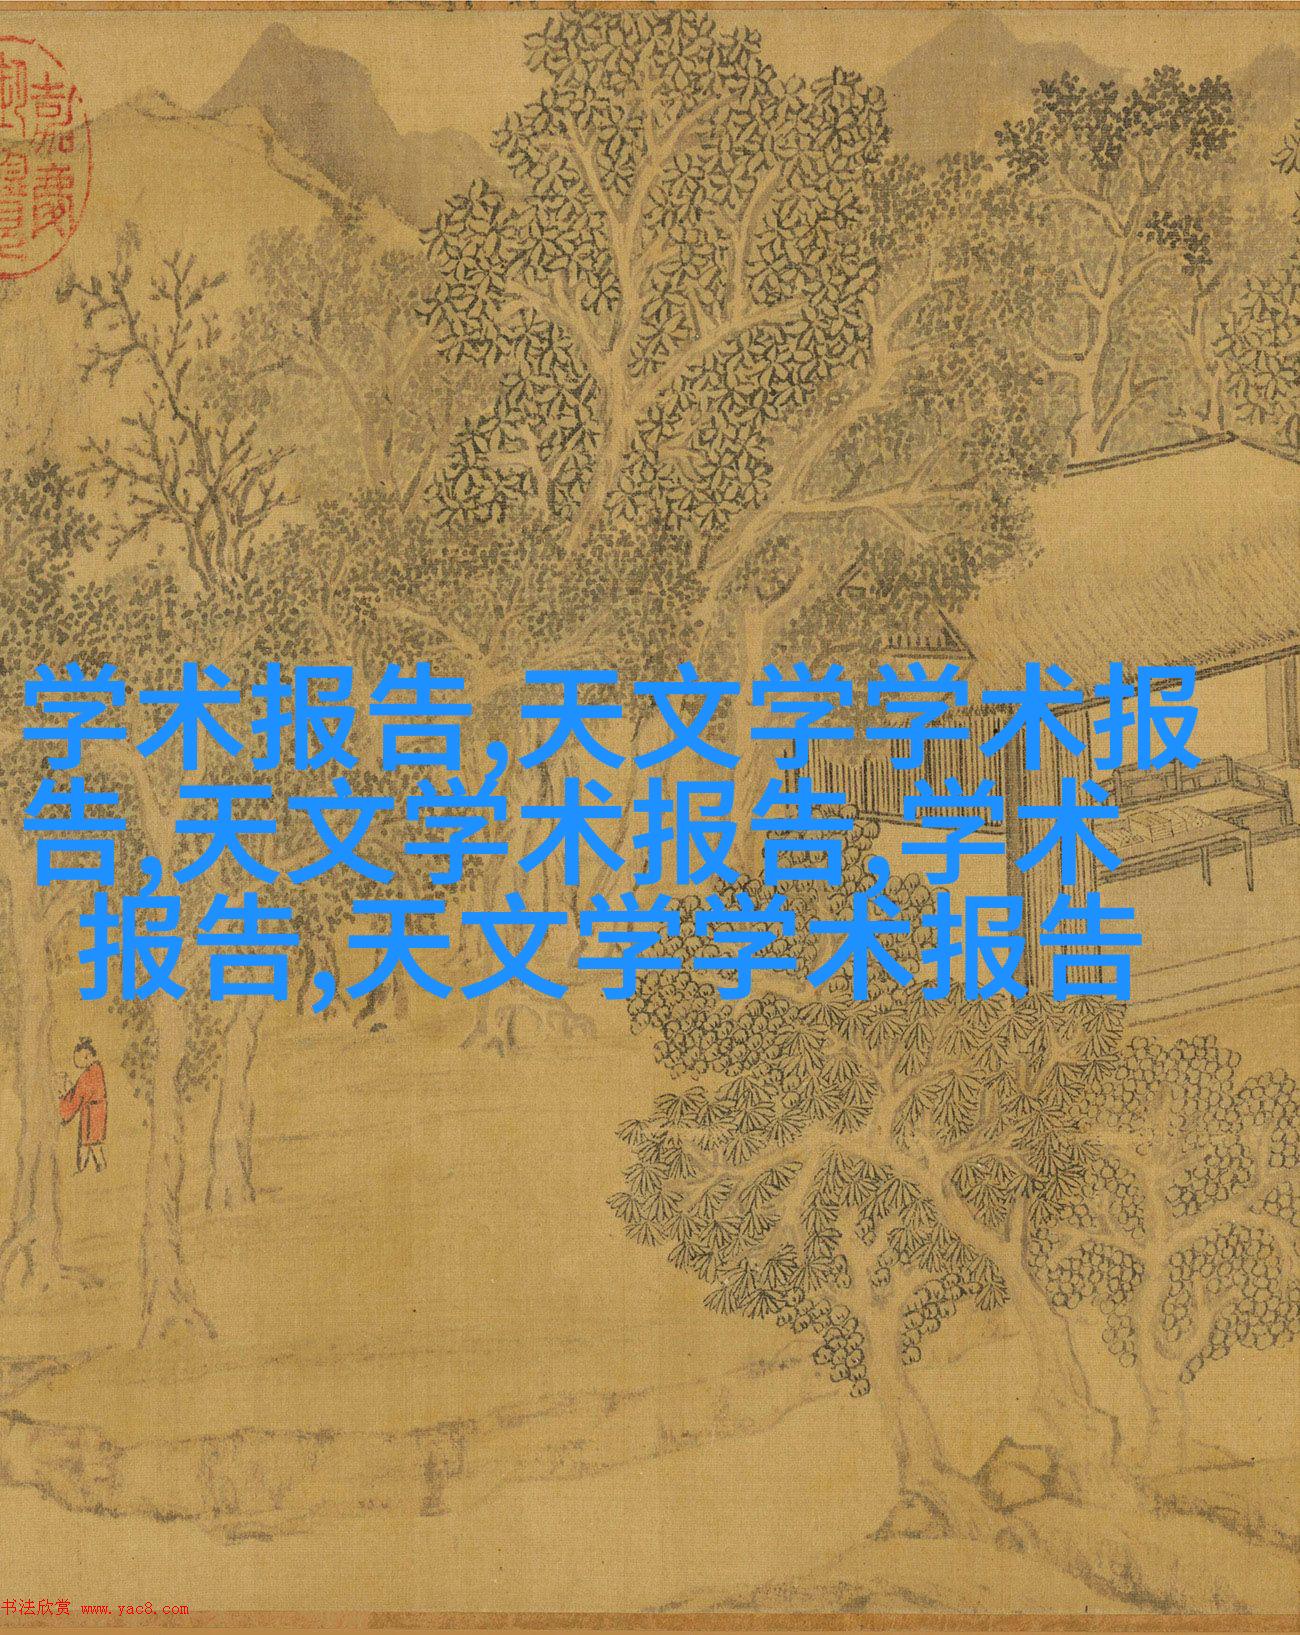 嘉慶
學术报告,天文学学术报
告,天文学术报告,学术
报告,天文学学术报告
书法欣赏 www.yac8.com